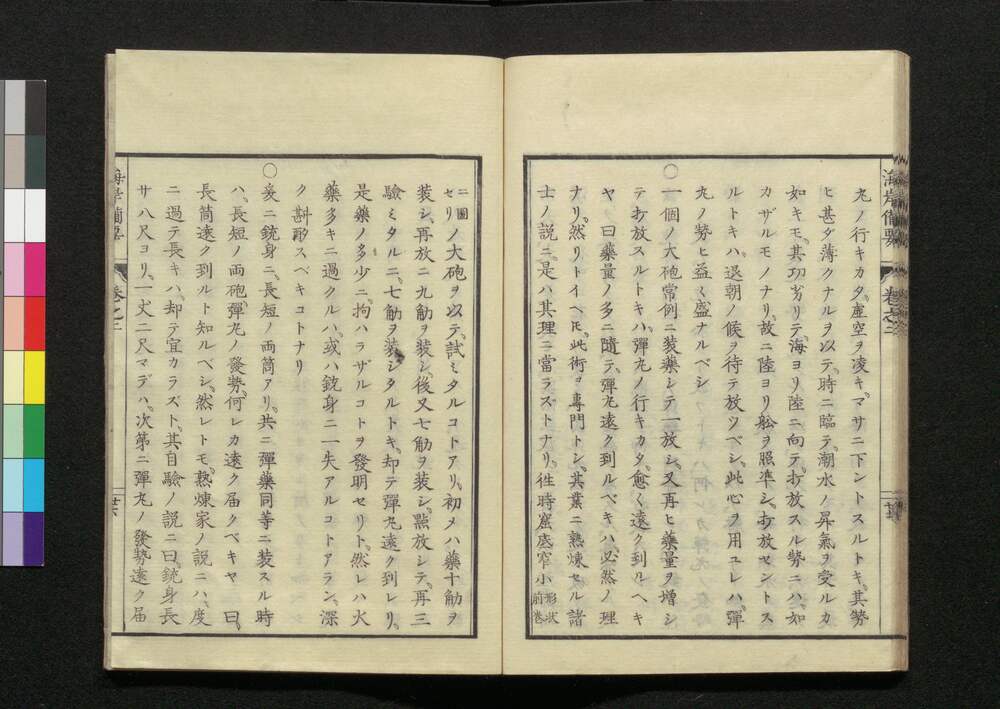 丸ノ行キカタ虚空ヲ凌キ、マサニ下ントスルトキ、其勢
ヒ甚ダ薄クナルヲ以テ、時ニ臨テ、潮水ノ昇氣ヲ受ルカ
如キモ、其功劣リテ、海ヨリ陸ニ向テ、打放スル勢ニハ、如
カザルモノナリ、故ニ陸ヨリ舩ヲ照準シ、打放セントス
ルトキハ、退朝ノ候ヲ待テ放ツベシ、此心ヲ用ユレハ、彈
丸ノ勢ヒ益々盛ナルベシ
○一個ノ大砲常例ニ装藥シテ一放シ、又再ヒ藥量ヲ増シ
テ打放スルトキハ、彈丸ノ行キカタ、愈々遠ク到ルヘキ
ヤ、ノ曰藥量ノ多ニ隨テ、彈丸遠ク到ルベキハ、必然ノ理
ナリ、然リトイヘ𪜈、此術ヲ專門トシ、其業ニ熟煉セル諸
士ノ說ニ、是ハ其理ニ當ラストナリ、徃時窟底窄小形状前巻
海岸備要
卷之二
ニ圖セリノ大砲ヲ以テ、試ミタルコトアリ、初メハ藥十觔ヲ
装シ、再放ニ九觔ヲ装シ、後又七觔ヲ装シ、點放シテ、再三
驗ミタルニ、七觔ヲ装シタルトキ、却テ彈丸遠ク到レリ、
是藥ノ多少ニ拘ハラザルコトヲ發明セリト、然レハ火
藥多キニ過クルハ、或ハ銃身ニ一失アルコトアラン、深
ク斟酌スベキコトナリ
○爰ニ銃身ニ、長短ノ両筒アリ、共ニ彈藥同等ニ装スル時
ハ、長短ノ両砲、彈丸ノ發勢、何レカ遠ク届クベキヤ 曰、
長筒遠ク到ルト知ルベシ、然レトモ、熟煉家ノ說ニハ、度
ニ過テ長キハ、却テ宜カラスト、其自驗ノ說ニ曰、銃身長
サ八尺ヨリ、一丈二尺マデハ、次第ニ彈丸ノ發勢遠ク届
海岸備要
卷之二
廿六